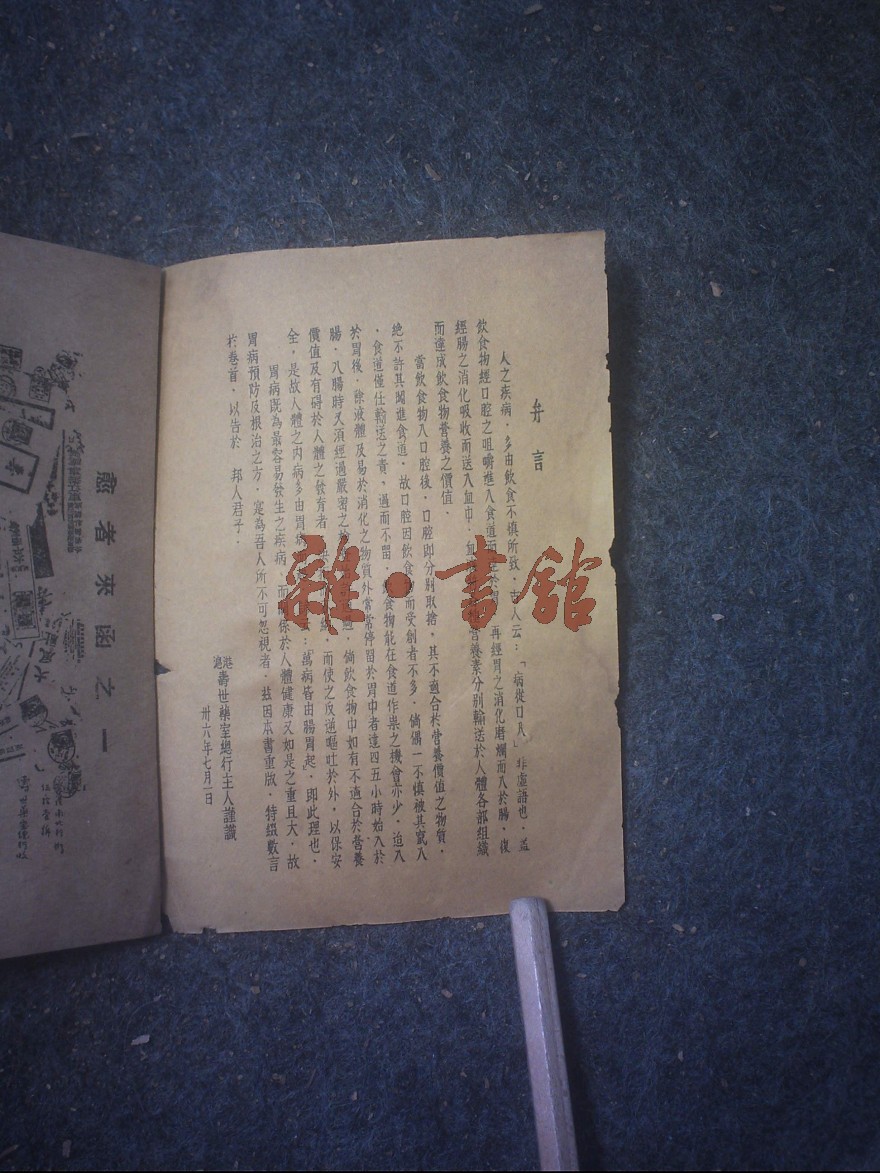 弁言
人之疾病．多由飲食不慎所致．古人云：「病從口入」非虛語也．蓋
飲食物經口腔之咀嚼進入食道而 於 再經胃之消化磨爛而入於腸．復
經腸之消化吸收而送入血中．血 營養素分別輸送於人體各部組織
而達成飲食物營養之價值．
當飲食物入口腔後．口腔即分別取捨．其不適合於營養價值之物質．
絕不許其闖進食道．故口腔因飲食 而受創者不多．倘偶一不慎被其竄入
．食道僅任輸送之責．過而不留． 食物能在食道作祟之機會亦少．迨入
於胃後．除液體及易於消化之物質外常常停留於胃中者達四五小時始入於
腸．入腸時又須經過嚴密之 ．倘飲食物中如有不適合於營養
價值及有碍於人體之發育者 ．而使之反逆嘔吐於外．以保安
全．是故人體之內病多由胃病 ：「萬病皆由腸胃起」．即此理也．
胃病既為最容易發生之疾病．而 係於人體健康又如是之重且大．故
胃病預防及根治之方．寔為吾人所不可忽視者．茲因本書重版．特綴數言
於卷首．以告於 邦人君子．
港滬壽世藥室總行主人謹識
卅六年七月一日
愈者來函之一
雜·書館